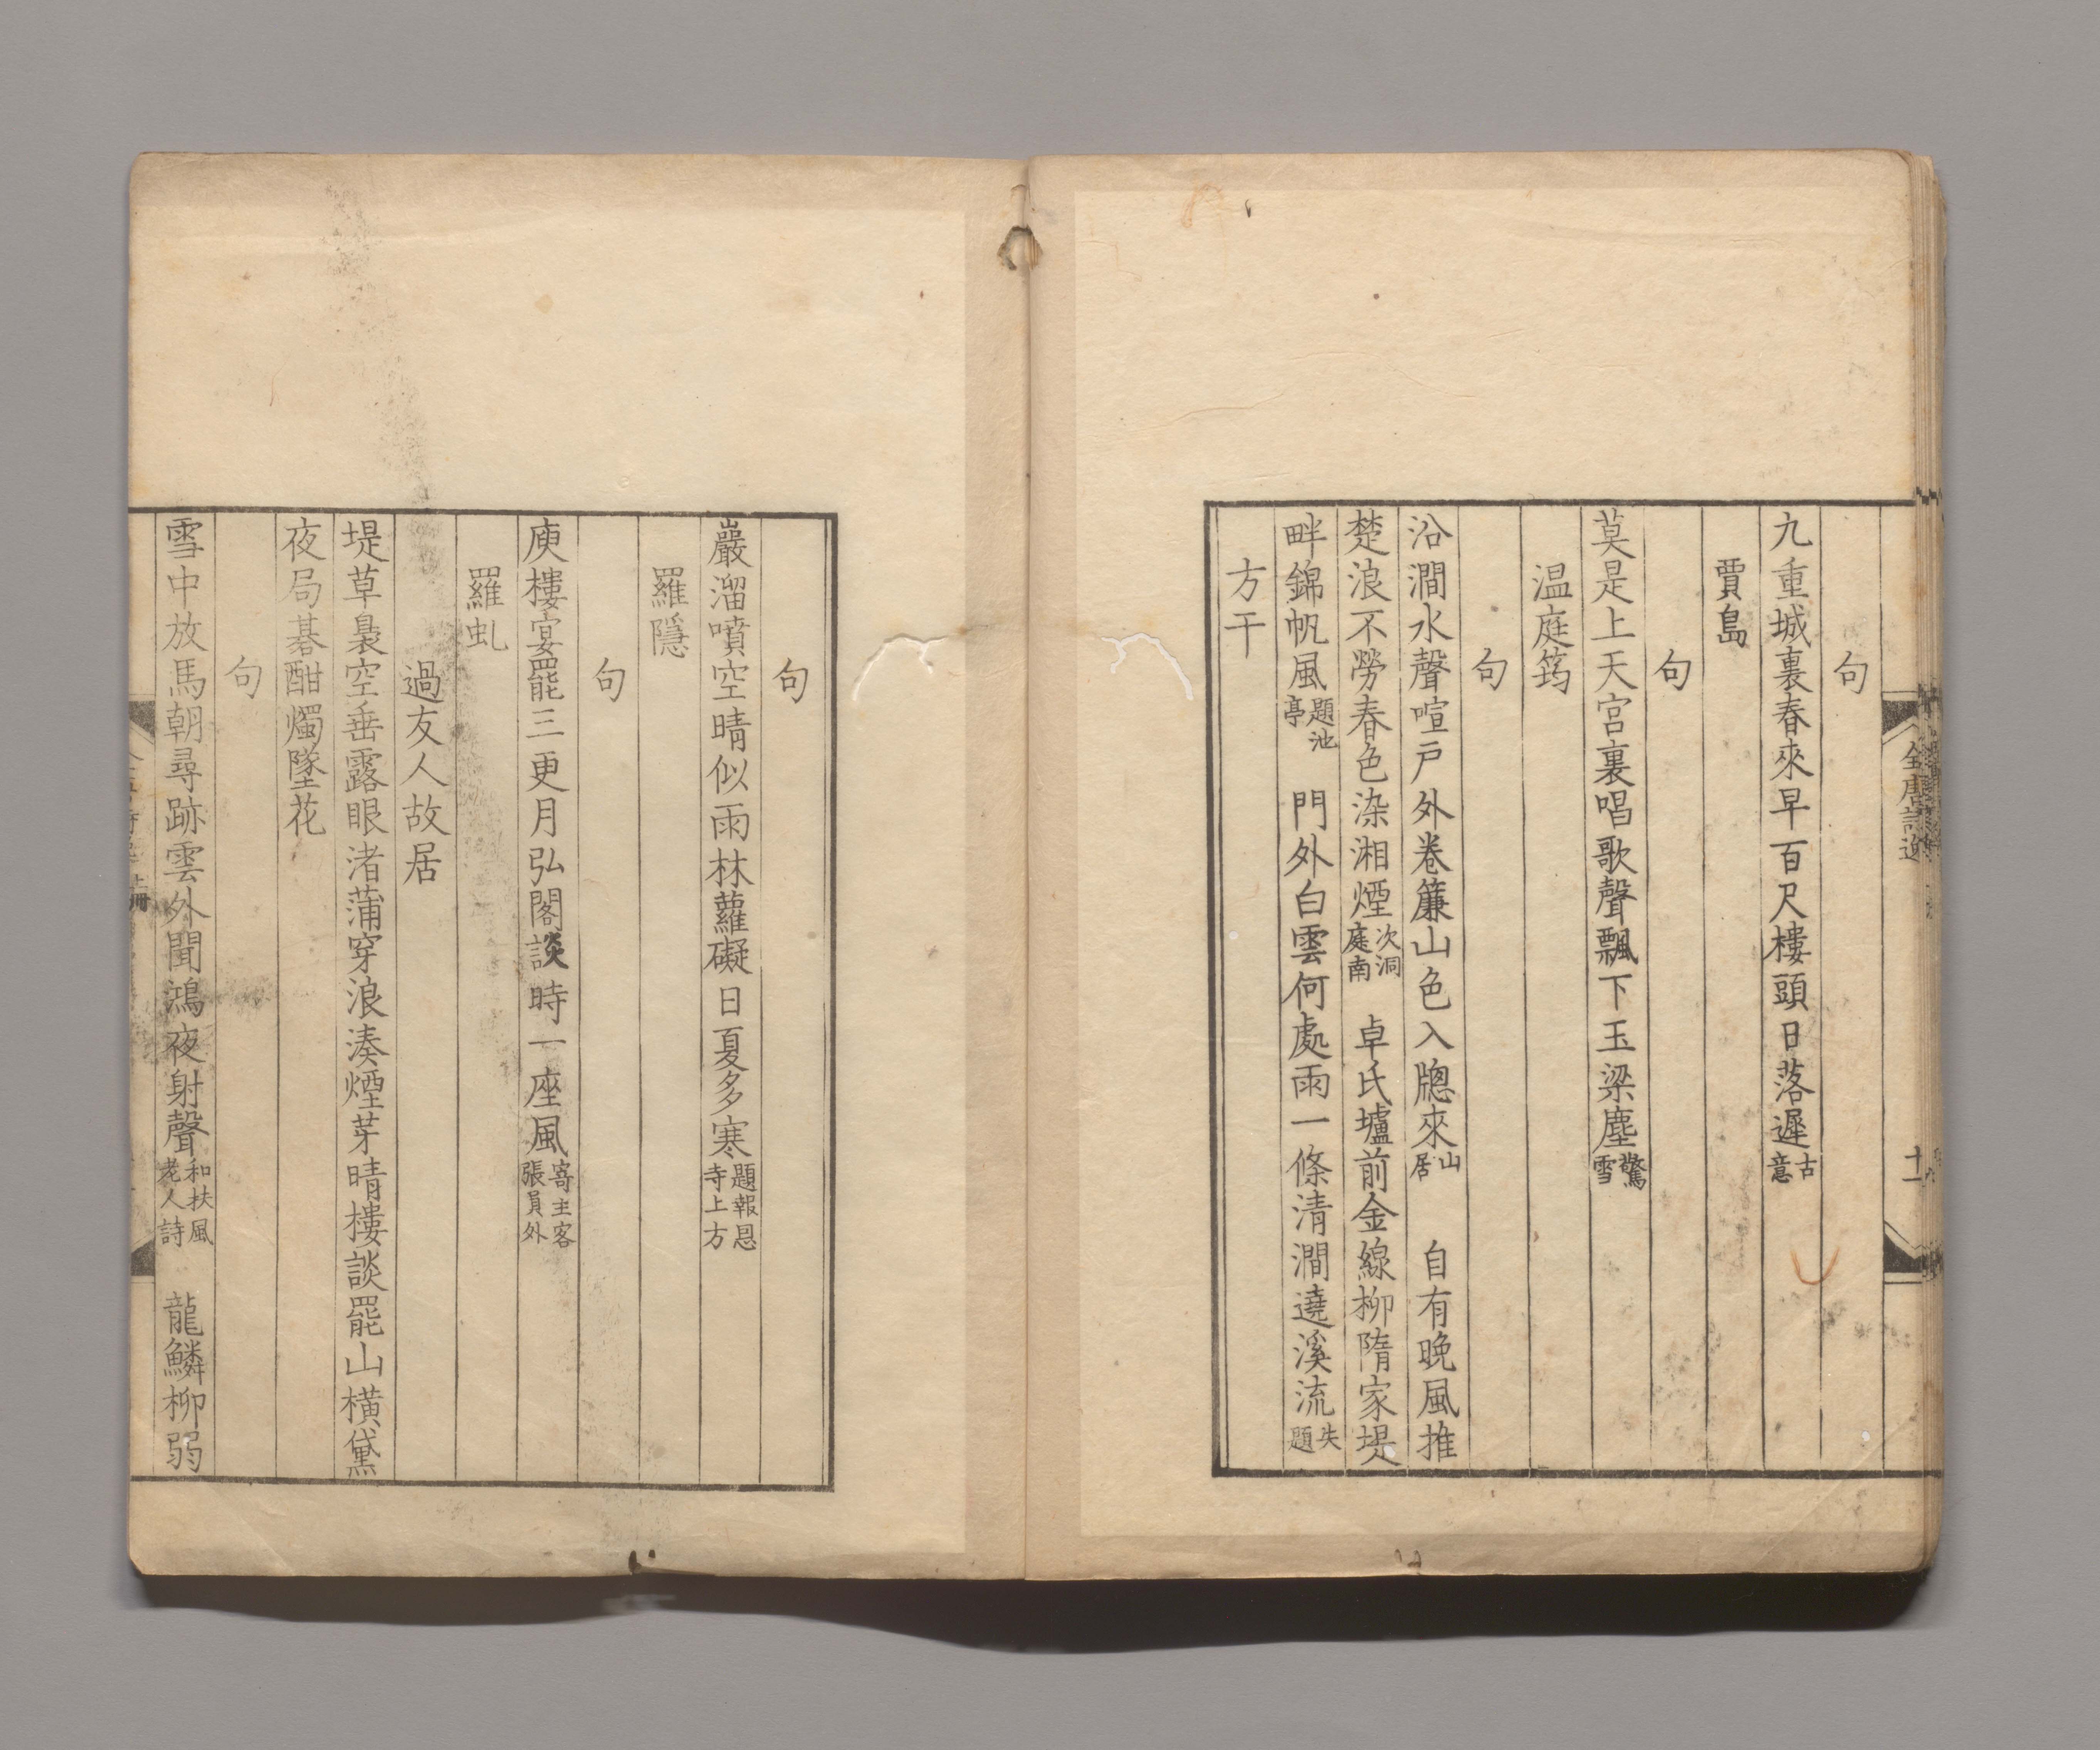 全唐詩逸
十一
句
九重城裏春來早百尺樓頭日落遲古意
賈島
句
莫是上天宮裏唱歌聲飄下玉梁塵驚雪
温庭筠
句
沿澗水聲喧戶外卷簾山色入牕來山居　自有晚風推
楚浪不勞春色染湘煙次洞庭南　卓氏壚前金線柳隋家堤
畔錦帆風題池亭　門外白雲何處雨一條清澗遶溪流失題
方干
句
巖溜噴空晴似雨林蘿礙日夏多寒題報恩寺上方
羅隱
句
庾樓宴罷三更月弘閣談時一座風寄主客張員外
羅虬
過友人故居
堤草裊空垂露眼渚蒲穿浪湊煙芽晴樓談罷山橫黛
夜局碁酣燭墜花
句
雪中放馬朝尋跡雲外聞鴻夜射聲和扶風老人詩　龍鱗柳弱